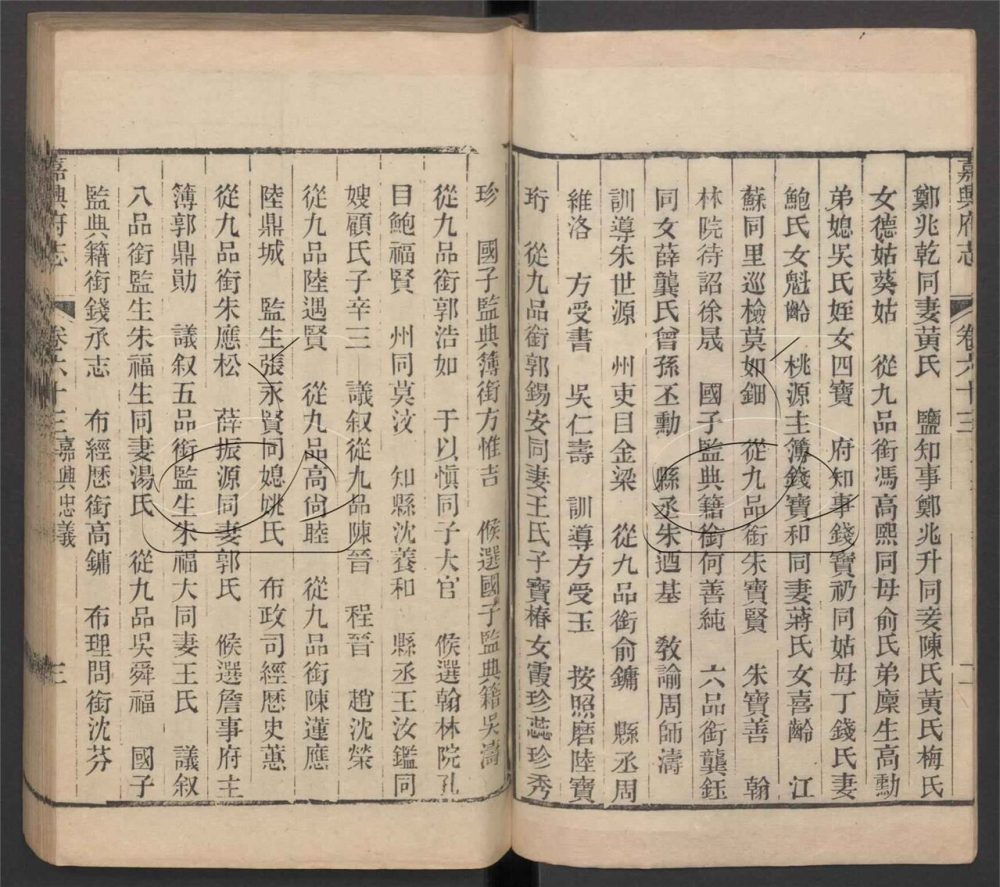 嘉興府志 卷六十三
鄭兆乾同妻黃氏 鹽知事鄭兆升同妾陳氏黃氏梅氏
女德姑葵姑 從九品銜馮高熙同母俞氏弟廩生高勳
弟媳吳氏姪女四寶 府知事錢寶礽同姑母丁錢氏妻
鮑氏女魁齡 桃源主簿錢寶和同妻蔣氏女喜齡 江
蘇同里巡檢莫如鈿 從九品銜朱寶賢 朱寶善 翰
林院待詔徐晟 國子監典籍銜何善純 六品銜龔鈺
同女薛龔氏曾孫丕勳 縣丞朱迺基 敎諭周師濤
訓導朱世源 州吏目金梁 從九品銜俞鏞 縣丞周
維洛 方受書 吳仁壽 訓導方受玉 按照磨陸寶
珩 從九品銜郭錫安同妻王氏子寶椿女霞珍蕊珍秀
珍 國子監典簿銜方惟吉 候選國子監典籍吳濤
從九品銜郭浩如 于以愼同子大官 候選翰林院孔
目鮑福賢 州同莫汶 知縣沈養和 縣丞王汝鑑同
嫂顧氏子辛三 議叙從九品陳晉 程晉 趙沈榮
從九品陸遇賢 從九品高尙睦 從九品銜陳蓮應
陸鼎城 監生張永賢同媳姚氏 布政司經歷史蕙
從九品銜朱應松 薛振源同妻郭氏 候選詹事府主
簿郭鼎勛 議叙五品銜監生朱福大同妻王氏 議叙
八品銜監生朱福生同妻湯氏 從九品吳舜福 國子
監典籍銜錢承志 布經歷銜高鏞 布理問銜沈芬
嘉興府志 卷六十三 嘉興忠義 三